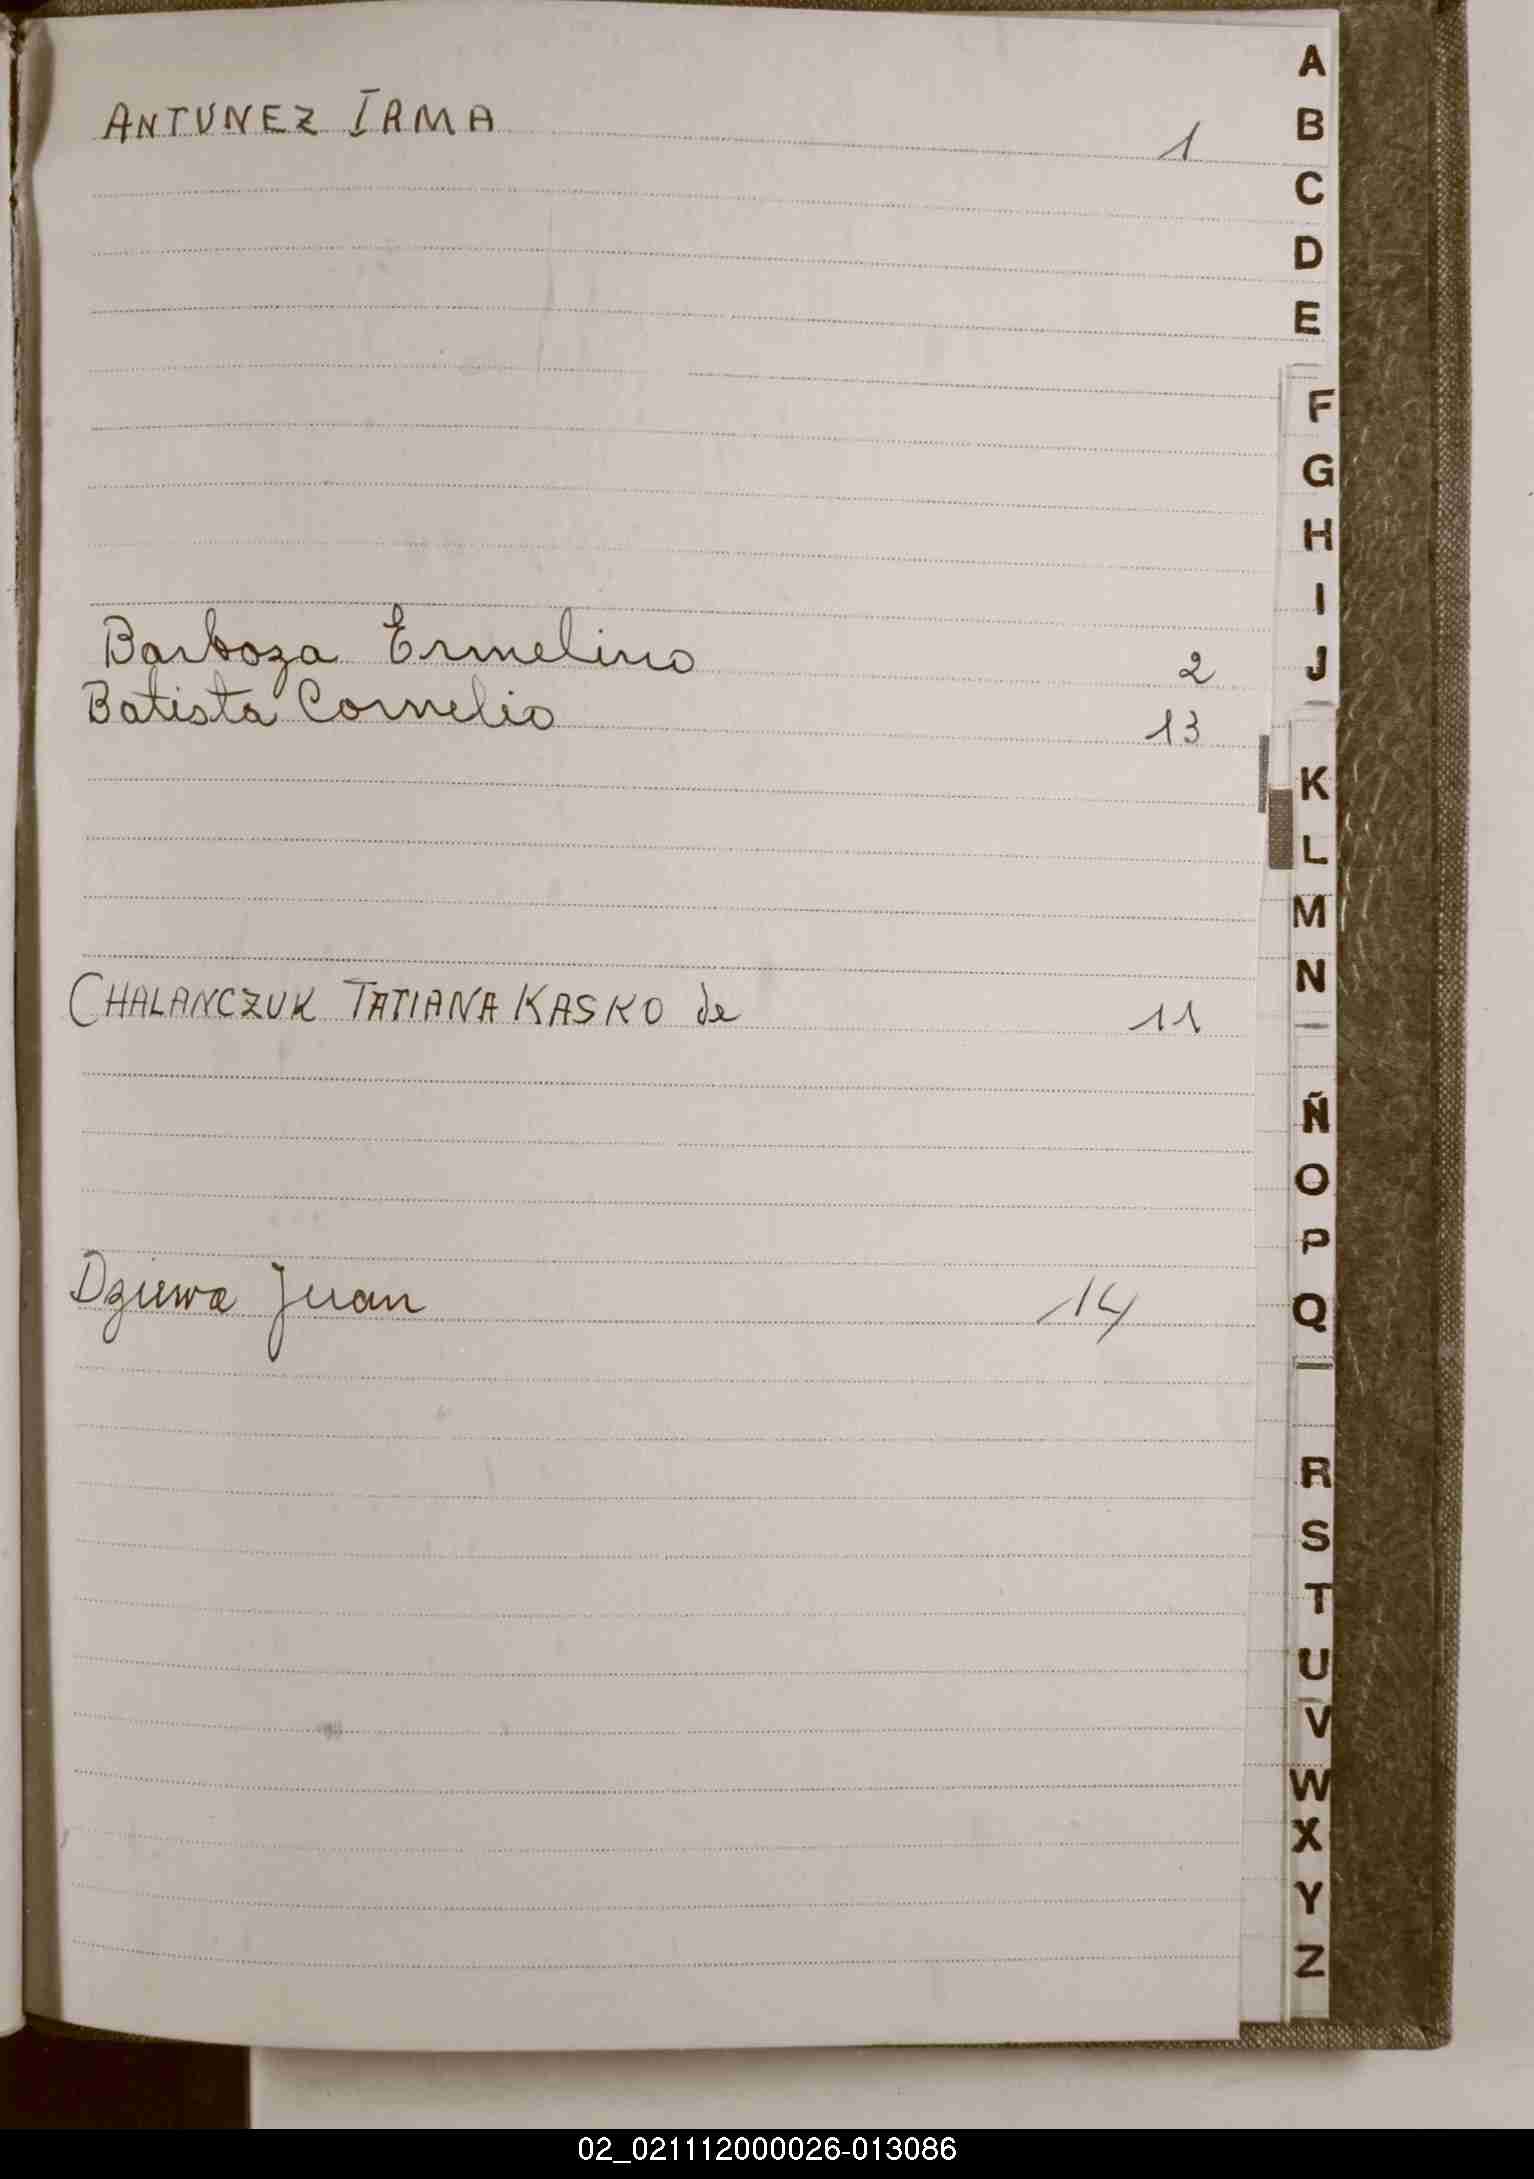 ANTUNEZ IRMA 1
Barboza Ermelino 2
Batista Cornelio 13
CHALANCZUK TATIANA KASKO de 11
Dziewa Juan 14
A
B
C
D
E
F
G
H
I
J
K
L
M
N
Ñ
O
P
Q
R
S
T
U
V
W
X
Y
Z
02_021112000026-013086